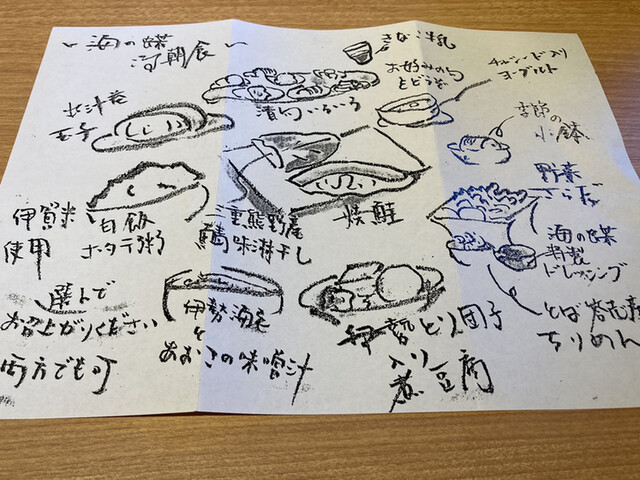 海の蝶
朝食
きなこ牛乳
お好みのもの
をどうぞ
入り
ヨーグルト
季節の
小鉢
出汁巻
玉子
漬物いろいろ
野菜
さらだ
海の蝶
特製
ドレッシング
伊賀米
使用
白飯
ホタテ粥
三重熊野産
鯖味淋干し
焼鮭
選んで
お召上がりください
両方でも可
伊勢海老
と
あおさの味噌汁
伊勢とり団子
入り
煮豆腐
とば
ちりめん